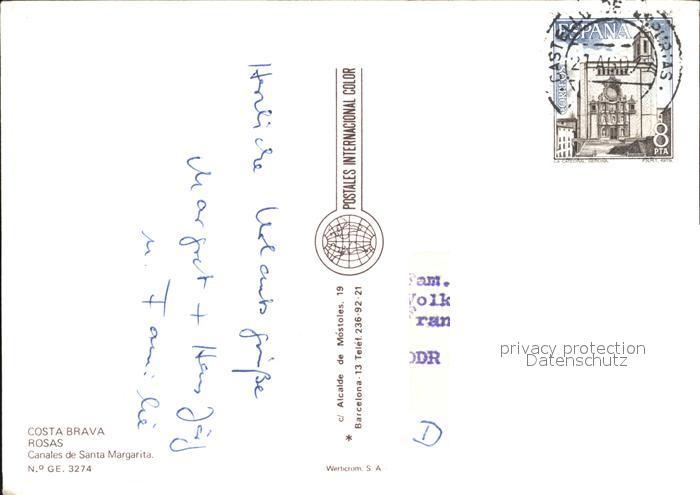 Herzliche Urlaubsgrüße
Margret + Hans Jörg
u. Familie
COSTA BRAVA
ROSAS
Canales de Santa Margarita.
N.º GE. 3274
POSTALES INTERNACIONAL COLOR
c/ Alcalde de Móstoles, 19
* Barcelona-13 Teléf. 236-92-21
Werticrom, S. A.
ESPAÑA
CORREOS
8 PTA
LA CATEDRAL, GERONA
F.N.M.T. 1979
CASTELLO DE AMPURIAS
Fam.
Volk
Fran
DDR
D
privacy protection
Datenschutz